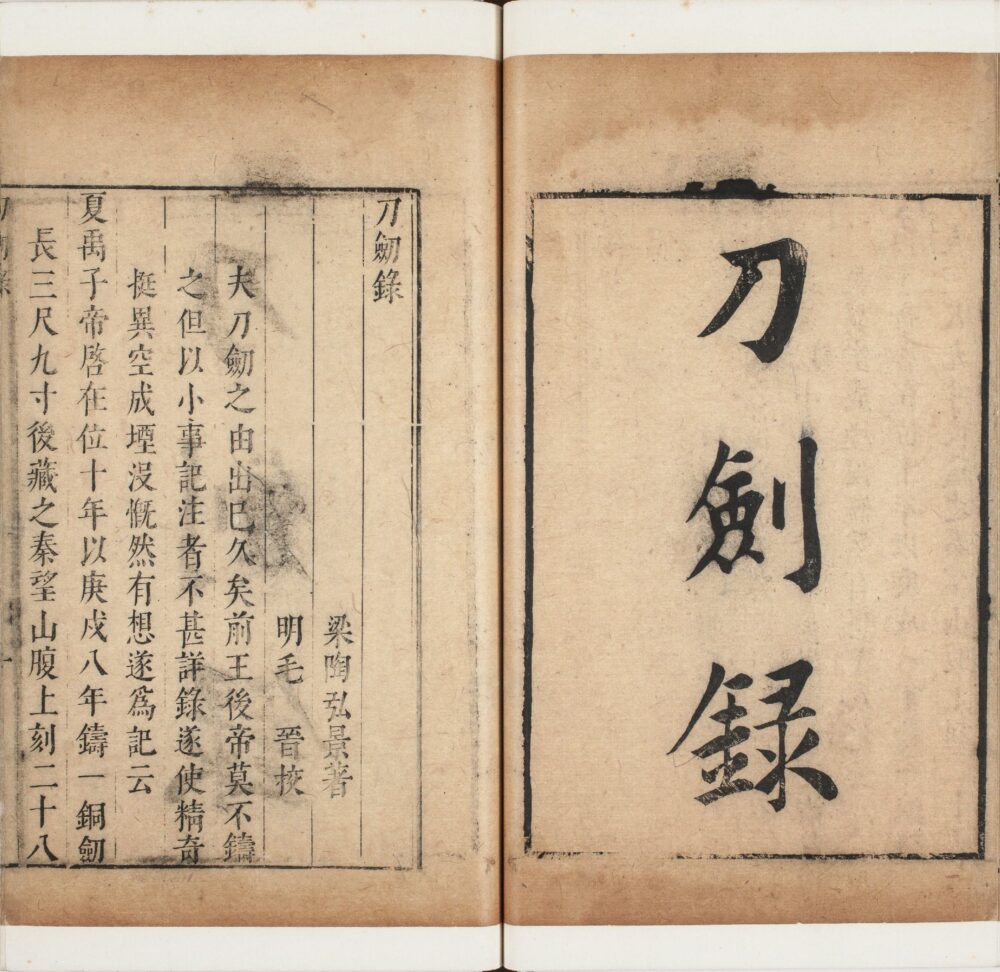 刀劍録
刀劒錄
梁陶弘景著
明毛　晉挍
夫刀劒之由出已久矣前王後帝莫不鑄
之但以小事記注者不甚詳錄遂使精奇
挺異空成堙没慨然有想遂爲記云
夏禹子帝啓在位十年以庚戌八年鑄一銅劒
長三尺九寸後藏之秦望山腹上刻二十八